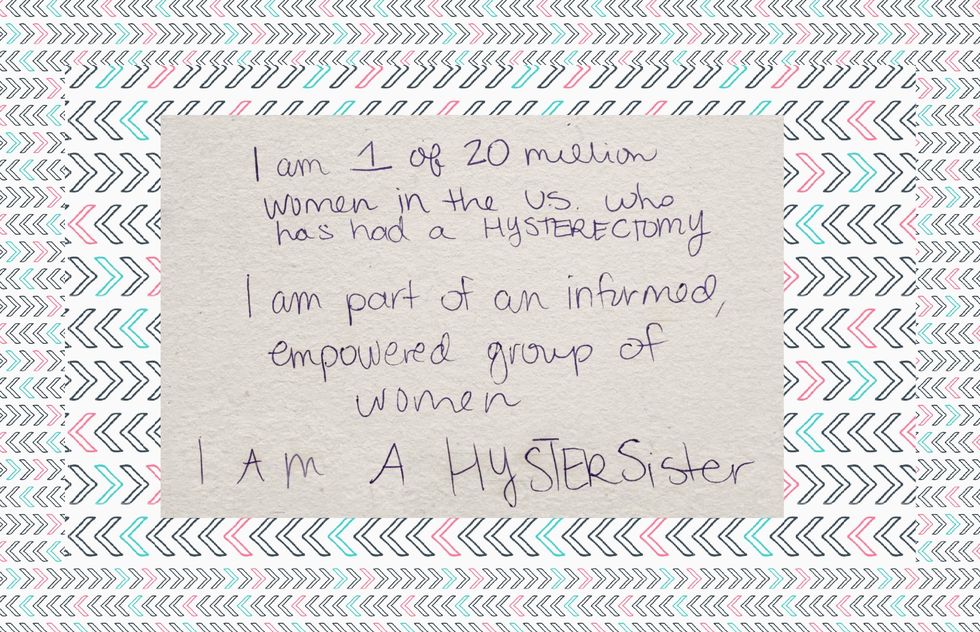 I am 1 of 20 million
women in the U.S. who
has had a HYSTERECTOMY
I am part of an informed,
empowered group of
women
I AM A HYSTERSister